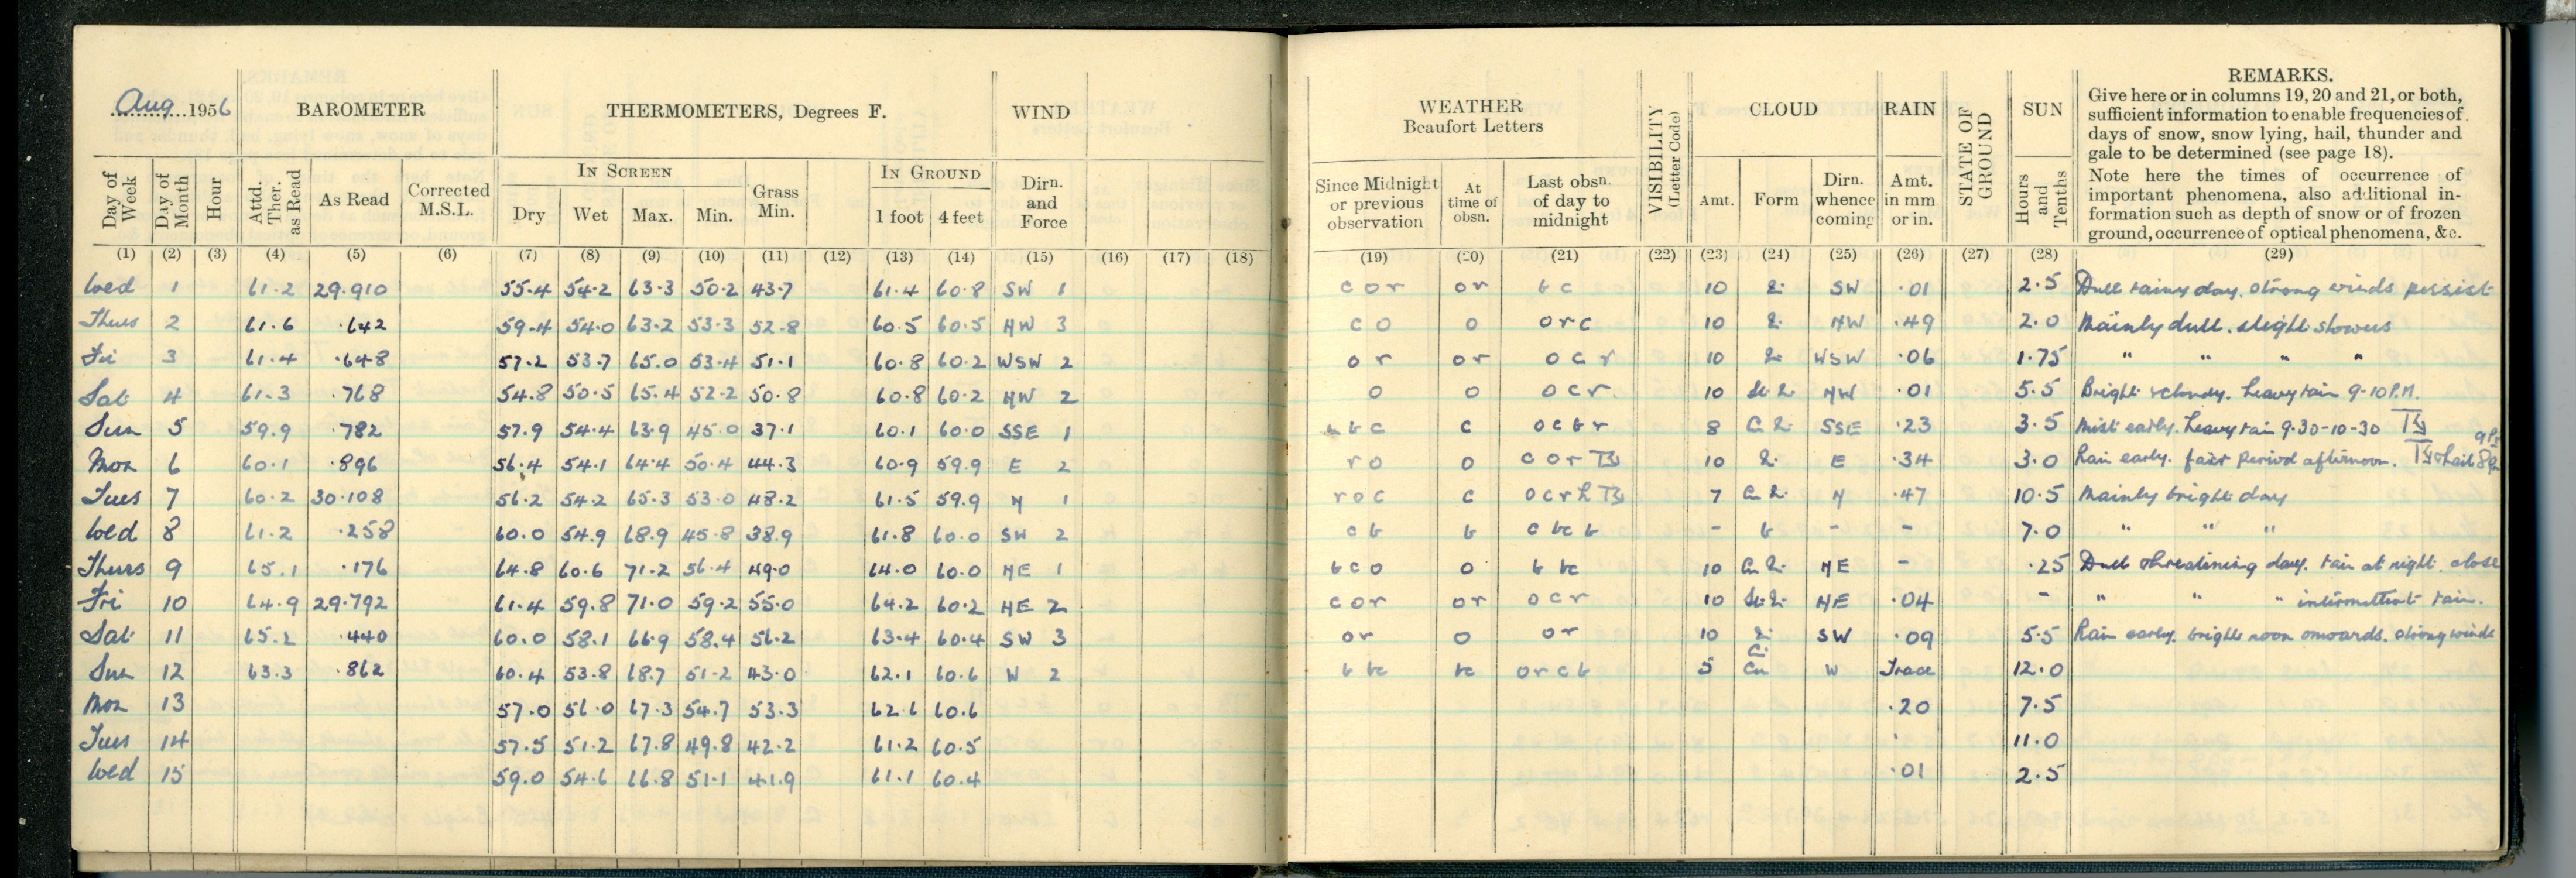 Aug. 1956 BAROMETER THERMOMETERS, Degrees F. WIND
Day of Week Day of Month Hour Attd. Ther. as Read As Read Corrected M.S.L. IN SCREEN Dry Wet Max. Min. Grass Min. IN GROUND 1 foot 4 feet Dirn. and Force
(1) (2) (3) (4) (5) (6) (7) (8) (9) (10) (11) (12) (13) (14) (15) (16) (17) (18)
Wed 1 61.2 29.910 55.4 54.2 63.3 50.2 43.7 61.4 60.8 SW 1
Thurs 2 61.6 .642 59.4 54.0 63.2 53.3 52.8 60.5 60.5 NW 3
Fri 3 61.4 .648 57.2 53.7 65.0 53.4 51.1 60.8 60.2 WSW 2
Sat 4 61.3 .768 54.8 50.5 65.4 52.2 50.8 60.8 60.2 NW 2
Sun 5 59.9 .782 57.9 54.4 63.9 45.0 37.1 60.1 60.0 SSE 1
Mon 6 60.1 .896 56.4 54.1 64.4 50.4 44.3 60.9 59.9 E 2
Tues 7 60.2 30.108 56.2 54.2 65.3 53.0 48.2 61.5 59.9 N 1
Wed 8 61.2 .258 60.0 54.9 68.9 45.8 38.9 61.8 60.0 SW 2
Thurs 9 65.1 .176 64.8 60.6 71.2 56.4 49.0 64.0 60.0 NE 1
Fri 10 64.9 29.792 61.4 59.8 71.0 59.2 55.0 64.2 60.2 NE 2
Sat 11 65.2 .440 60.0 58.1 66.9 58.4 56.2 63.4 60.4 SW 3
Sun 12 63.3 .862 60.4 53.8 68.7 51.2 43.0 62.1 60.6 W 2
Mon 13 57.0 56.0 67.3 54.7 53.3 62.6 60.6
Tues 14 57.5 51.2 67.8 49.8 42.2 61.2 60.5
Wed 15 59.0 54.6 66.8 51.1 41.9 61.1 60.4
WEATHER Beaufort Letters VISIBILITY (Letter Code) CLOUD RAIN STATE OF GROUND SUN REMARKS.
Give here or in columns 19, 20 and 21, or both,
sufficient information to enable frequencies of
days of snow, snow lying, hail, thunder and
gale to be determined (see page 18).
Note here the times of occurrence of
important phenomena, also additional in-
formation such as depth of snow or of frozen
ground, occurrence of optical phenomena, &c.
Since Midnight or previous observation At time of obsn. Last obsn. of day to midnight Amt. Form Dirn. whence coming Amt. in mm or in. Hours and Tenths
(19) (20) (21) (22) (23) (24) (25) (26) (27) (28) (29)
c o r o r b c 10 SW .01 2.5 Dull rainy day. strong winds persist
c o o o r c 10 NW .49 2.0 Mainly dull. slight showers
o r o r o c r 10 WSW .06 1.75 " " " "
o o o c r 10 NW .01 5.5 Bright & cloudy. heavy rain 9-10 P.M.
b c c o c b r 8 SSE .23 3.5 Mist early. heavy rain 9.30-10-30
r o o c o r 10 E .34 3.0 Rain early. fair period afternoon.
r o c c o c r h 7 N .47 10.5 Mainly bright day
c b b c bc b - b - - 7.0 " " "
b c o o b bc 10 NE - .25 Dull threatening day. rain at night. close
c o r o r o c r 10 NE .04 - " " " intermittent rain.
o r o o r 10 SW .09 5.5 Rain early. bright noon onwards. strong winds
b bc bc o r c b 5 Ci Cu W Trace 12.0
.20 7.5
11.0
.01 2.5